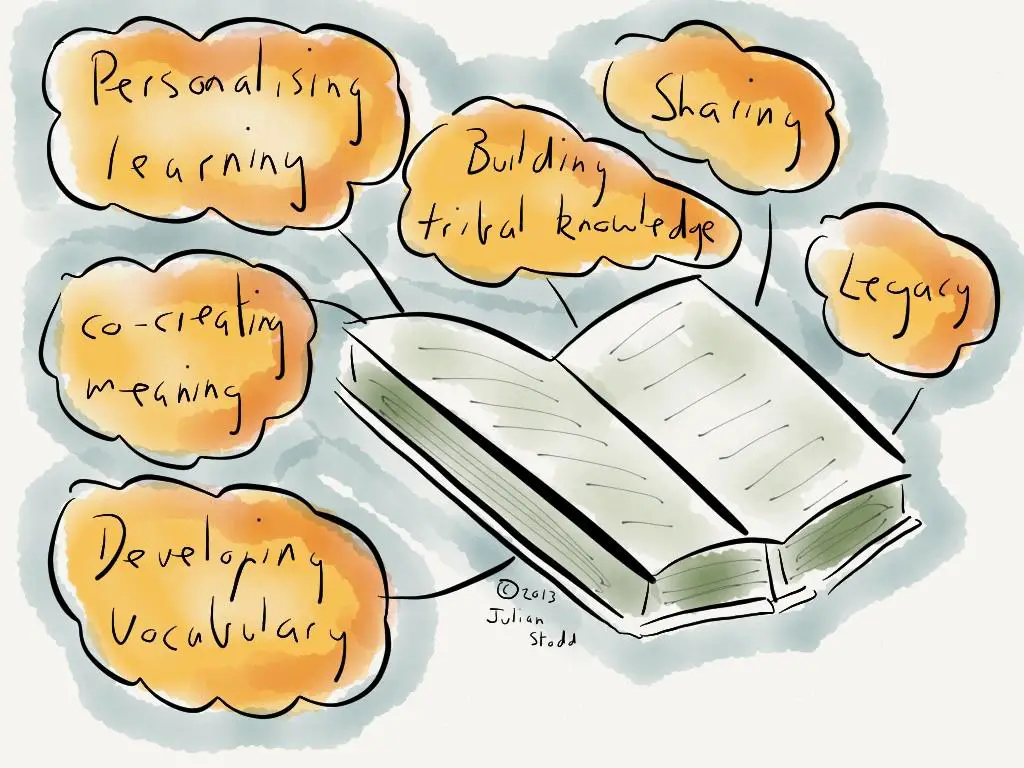 Personalising
learning
Building
tribal knowledge
Sharing
Legacy
co-creating
meaning
Developing
vocabulary
©2013
Julian
Stodd